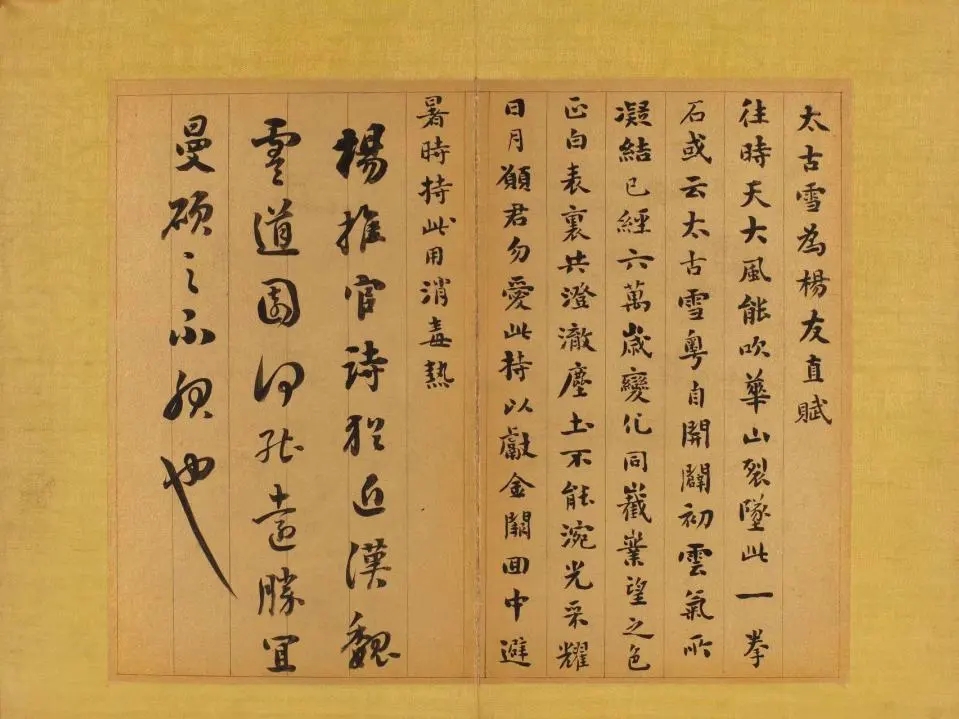 太古雪為楊友直賦
往時天大風能吹華山裂墜此一拳
石或云太古雪粤自開闢初雲氣所
凝結已經六萬歲變化同巀嶪望之色
正白表裏共澄澈塵土不能涴光采耀
日月願君勿愛此持以獻金闕回中避
暑時持此用消毒熱
楊推官詩近漢魏
虞道園何能遠勝宜
曼碩之不服也